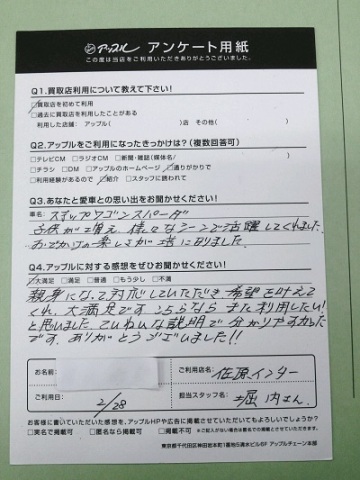 アップル アンケート用紙
この度は当店をご利用いただきありがとうございました。
Q1.買取店利用について教えて下さい!
□買取店を初めて利用
□過去に買取店を利用したことがある
利用した店舗: アップル( )店 その他( )
Q2.アップルをご利用になったきっかけは?(複数回答可)
□テレビCM □ラジオCM □新聞・雑誌(媒体名/ )
□チラシ □DM □アップルのホームページ □通りがかりで
□利用経験があるので □紹介 □スタッフに誘われて
Q3.あなたと愛車との思い出をお聞かせください!
車名: ステップワゴンスパーダ
子供が増え、様々なシーンで活躍してくれました。
おでかけの楽しみが倍になりました。
Q4.アップルに対する感想をぜひお聞かせください!
□大満足 □満足 □普通 □もう少し □不満
親身になって対応していただき希望を叶えて
くれ、大満足です。こちらならまた利用したい!
と思いました。ていねいな説明で分かりやすかった
です。ありがとうございました!!
お名前:
ご利用店名: 佐原インター
ご利用日: 2/28
担当スタッフ名: 堀内さん
お客様に書いていただいた感想を、アップルHPや広告に掲載させていただいてもよろしいでしょうか?
□実名で掲載可 □匿名なら掲載可 □掲載不可
東京都千代田区神田佐本町1番地6清水ビル6F アップルチェーン本部